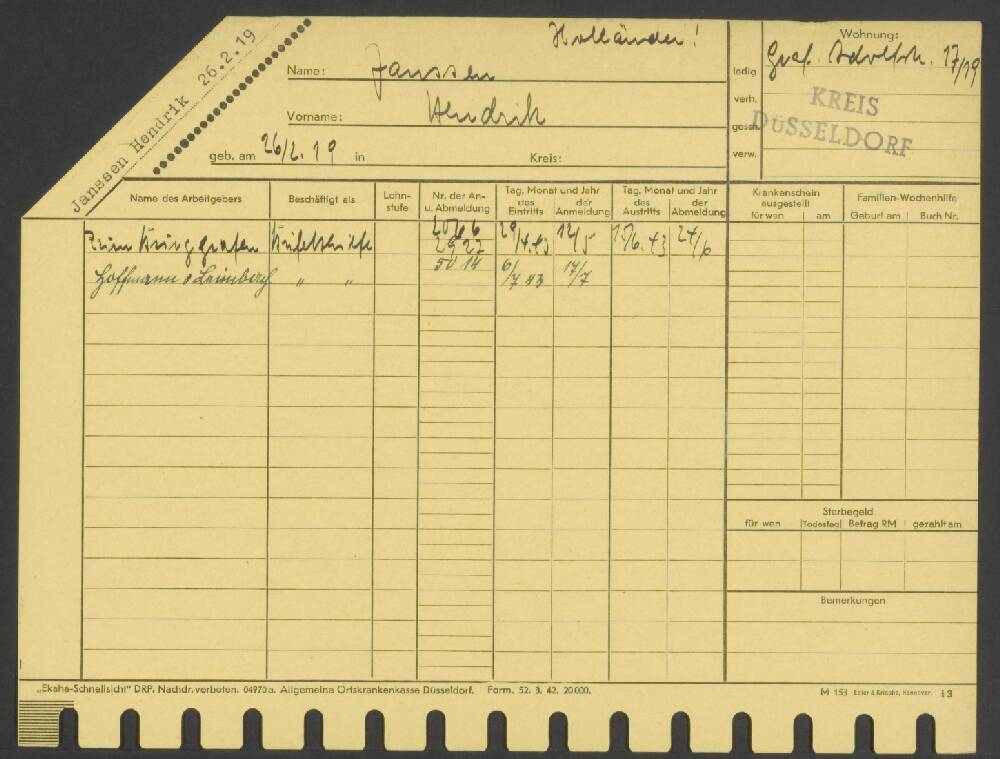 Janssen Hendrik 26.2.19
Holländer!
Name: Janssen
Vorname: Hendrik
geb. am 26/2.19 in Kreis:
ledig
verh.
gesch.
verw.
Wohnung:
Graf. Adolfstr. 17/19
KREIS
DÜSSELDORF
Name des Arbeitgebers
Beschäftigt als
Lohn-
stufe
Nr. der An-
u. Abmeldung
Tag, Monat und Jahr
des Eintritts
der Anmeldung
Tag, Monat und Jahr
des Austritts
der Abmeldung
Krankenschein
ausgestellt
für wen am
Familien-Wochenhilfe
Geburt am Buch Nr.
29/4.43 12/5 17/6.43 24/6
2922
Hoffmann & Leimberg " " 5014 6/7 43 14/7
Sterbegeld
für wen Todestag Betrag RM gezahlt am
Bemerkungen
„Ekaha-Schnellsicht" DRP. Nachdr. verboten. 04970a. Allgemeine Ortskrankenkasse Düsseldorf. Form. 52. 3. 42. 20000.
M 153 Edler & Krische, Hannover. i 3